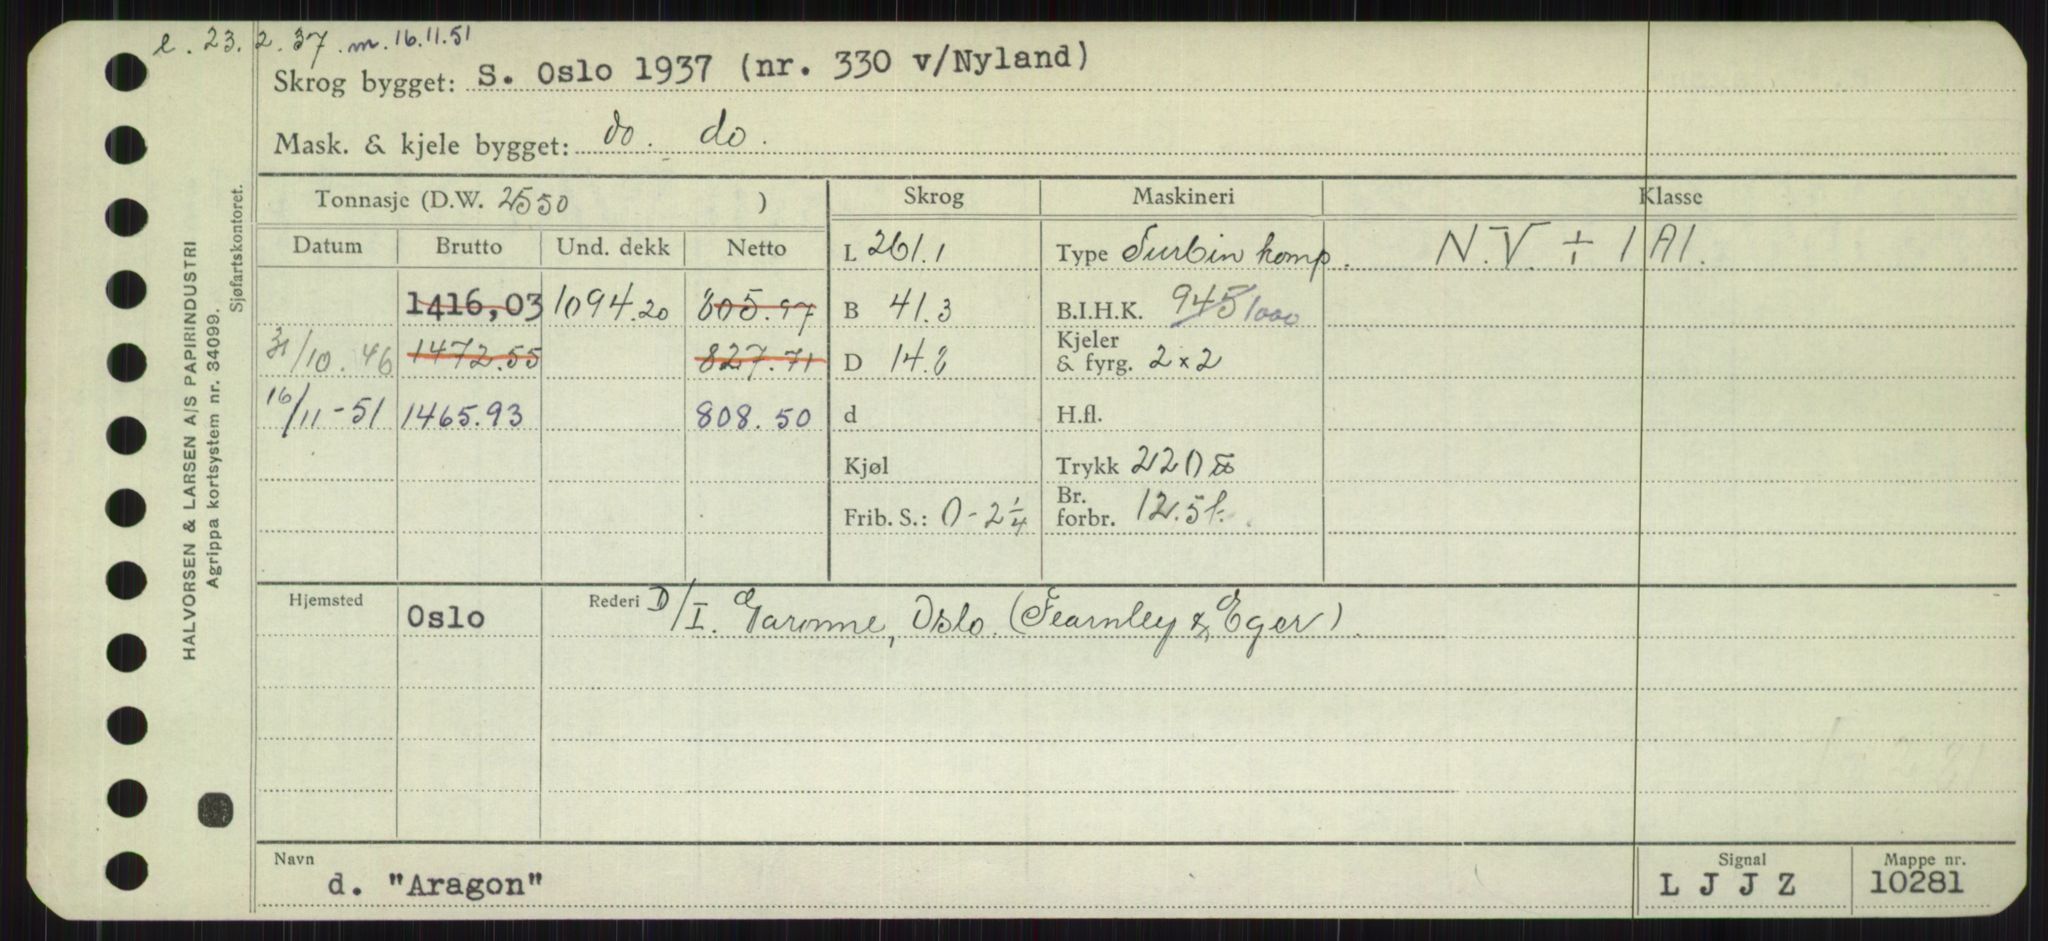 e. 23. 2. 37. m. 16.11.51
Skrog bygget: S. Oslo 1937 (nr. 330 v/Nyland)
Mask. & kjele bygget: do. do.
Tonnasje (D.W. 2550 ) Skrog Maskineri Klasse
Datum Brutto Und. dekk Netto L 261.1 Type Turbin komp. N.V. + 1A1.
1416,03 1094.20 805.97 B 41.3 B.I.H.K. 945/1000
31/10. 46 1472.55 827.71 D 14.8 Kjeler & fyrg. 2x2
16/11-51 1465.93 808.50 d H.fl.
Kjøl Trykk 220 ℔
Frib. S.: 0-2 1/4 Br. forbr. 12.5 t.
Hjemsted Oslo Rederi D/I. Garonne, Oslo. (Fearnley & Eger).
Navn d. "Aragon" Signal L J J Z Mappe nr. 10281
HALVORSEN & LARSEN A/S PAPIRINDUSTRI
Agrippa kortsystem nr. 34099.
Sjøfartskontoret.